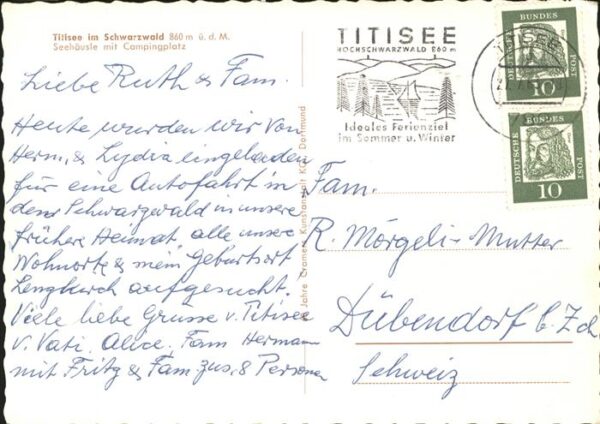 Titisee im Schwarzwald 860 m ü. d. M.
Seehäusle mit Campingplatz
Liebe Ruth & Fam.
Heute wurden wir von
Herm. & Lydia eingeladen
für eine Autofahrt in
den Schwarzwald in unsere
frühere Heimat, alle unsere
Wohnorte & mein Geburtsort
Lenzkirch aufgesucht.
Viele liebe Grüsse v. Titisee
v. Vati, Alice. Fam Hermann
mit Fritz & Fam zus. 8 Personen
Jahre Cramers Kunstanstalt KG, Dortmund
TITISEE
HOCHSCHWARZWALD 860 m
Ideales Ferienziel
im Sommer u. Winter
TITISEE
DEUTSCHE BUNDES POST
10
DEUTSCHE BUNDES POST
10
Fam.
R. Mörgeli-Mutter
Dübendorf b. Zch
Schweiz